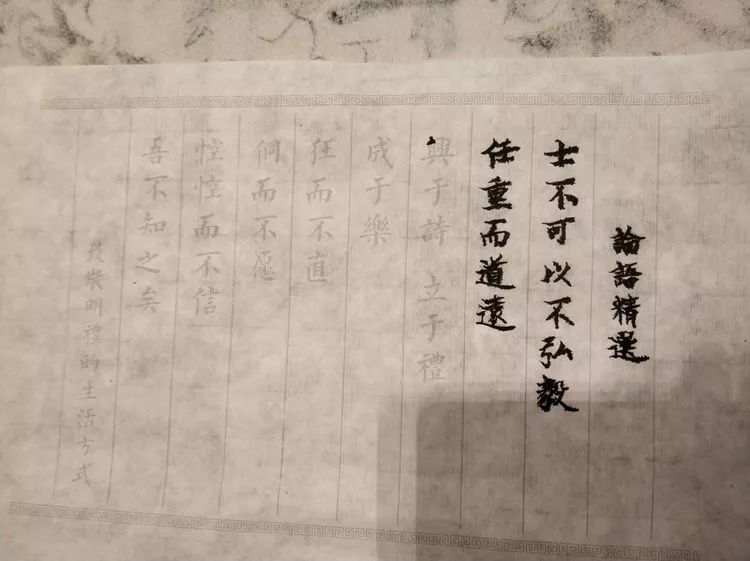 論語精選
士不可以不弘毅
任重而道遠
興于詩 立于禮
成于樂
狂而不直
侗而不愿
悾悾而不信
吾不知之矣
致敬明禮的生活方式